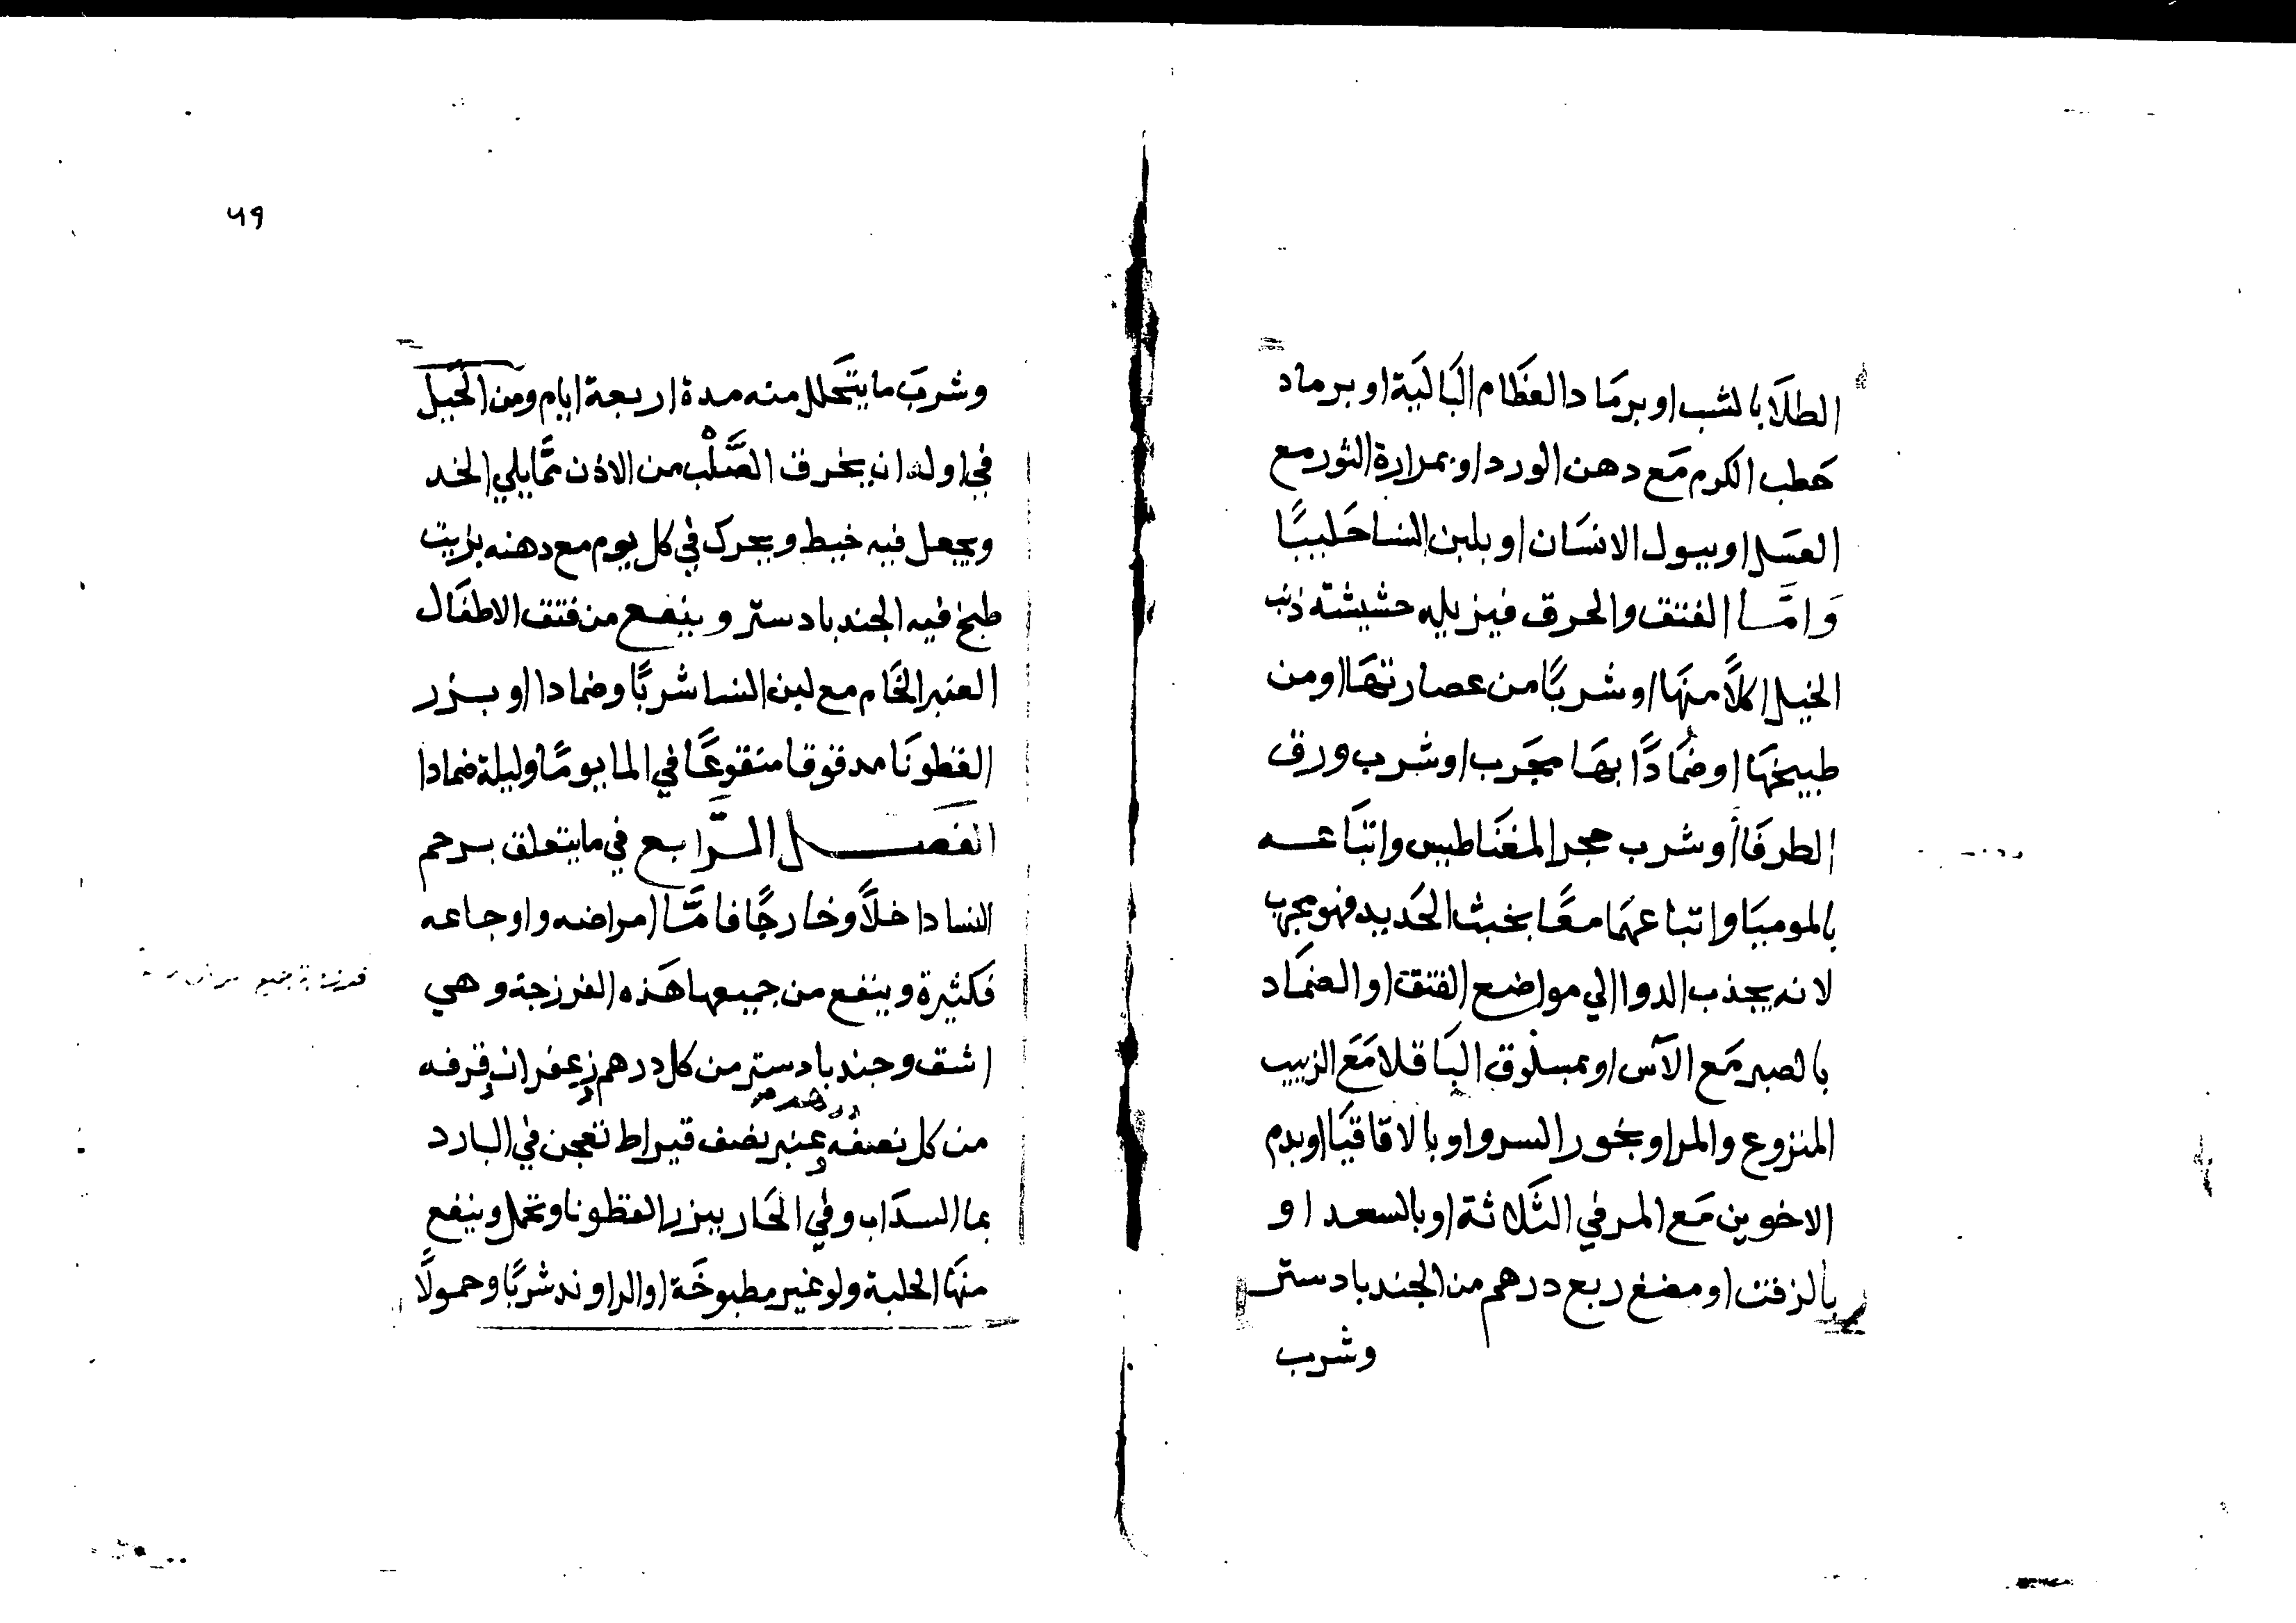 الطلَا بالشب او برمَاد العظَام البَاليَة او برماد
حَطب الكرم مَع دهن الورد او بمرارة الثور مع
العسَل او ببول الانسَان او بلبن النسا حَليبًا
وَامَّا الفتق والحرق فيزيله حشيشته ذنب
الخيل اكلاً منهَا او شربًا من عصارتهَا او من
طبيخهَا او ضمَادًا بهَا مجَرب او شرب ورق
الطرفَا او شرب حجر المغنَاطيس واتبَاعه
بالموميَا واتباعهمَا معًا بخبث الحَديد فهو مجرب
لانه يجذب الدوا الي مواضع الفتق او الضمَاد
بالصبر مَع الآس او بمسلوق البَاقلا مَعَ الزبيب
المنزوع والمر او بخور السرو او بالاقاقيَا او بدم
الاخوين مَع المر في الثَلاثة او بالسعد او
بالزفت او مضغ ربع درهم من الجندبادستر
وشرب
٦٩
وشربَ ما يتحَلل منه مدة اربعة ايام ومن الحَيل
في اوله ان يخرق الصَّلْب من الاذن ممَّا يلي الخد
ويجعل فيه خيط ويحرك في كل يوم مع دهنه بزيت
طبخ فيه الجندبادستر وينفع من فتق الاطفَال
العنبر الخَام مع لبن النسا شربًا وضمادا او بزر
القطونَا مدقوقا منقوعًا في الما يومًا وليلة ضمادا
الفَصل الرَّابع في ما يتعلق برحم
النسا داخلاً وخارجًا فامَّا امراضه واوجاعه
فكثيرة وينفع من جميعها هَذه الفرزجة وهي
اشق وجندبادستر من كل درهم زعفران وقرفه
درهم
من كل نصفه وعنبر نصف قيراط تعجن في البارد
بما السدَاب وفي الحَار ببزر القطونا وتحمل وينفع
منهَا الحلبة ولو غير مطبوخَة او الراوند شربًا وحمولًا